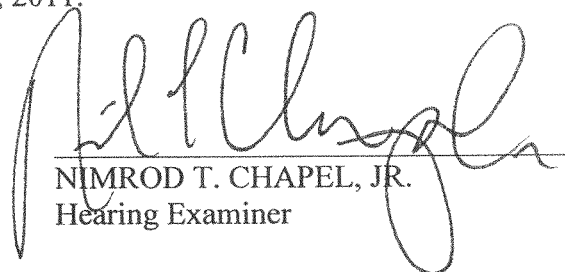 , 2011.
NIMROD T. CHAPEL, JR.
Hearing Examiner